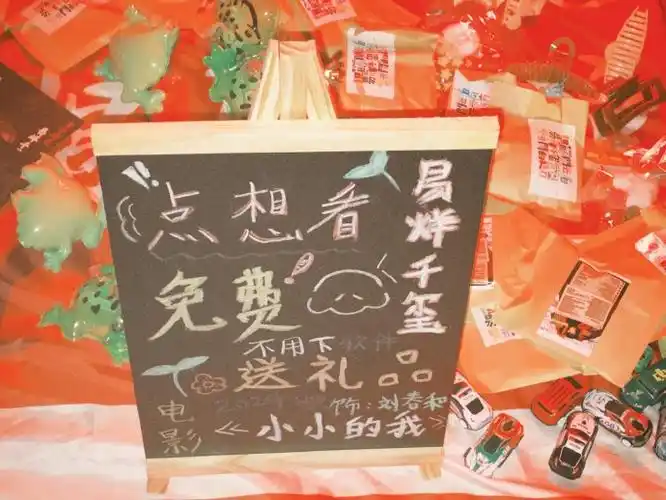 点想看
易烊千玺
免费!
不用下软件
送礼品
饰:刘春和
电影
《小小的我》